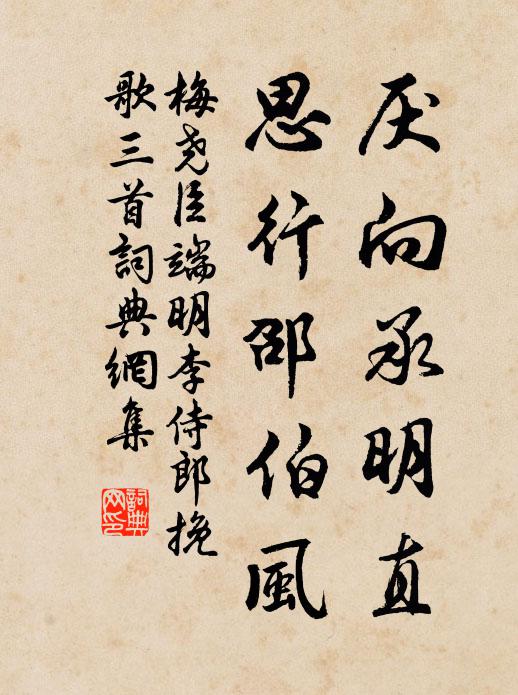 厌向承明直
思行邵伯風
梅尧臣端明李侍郎挽
歌三首詞典網集
詞典
网印